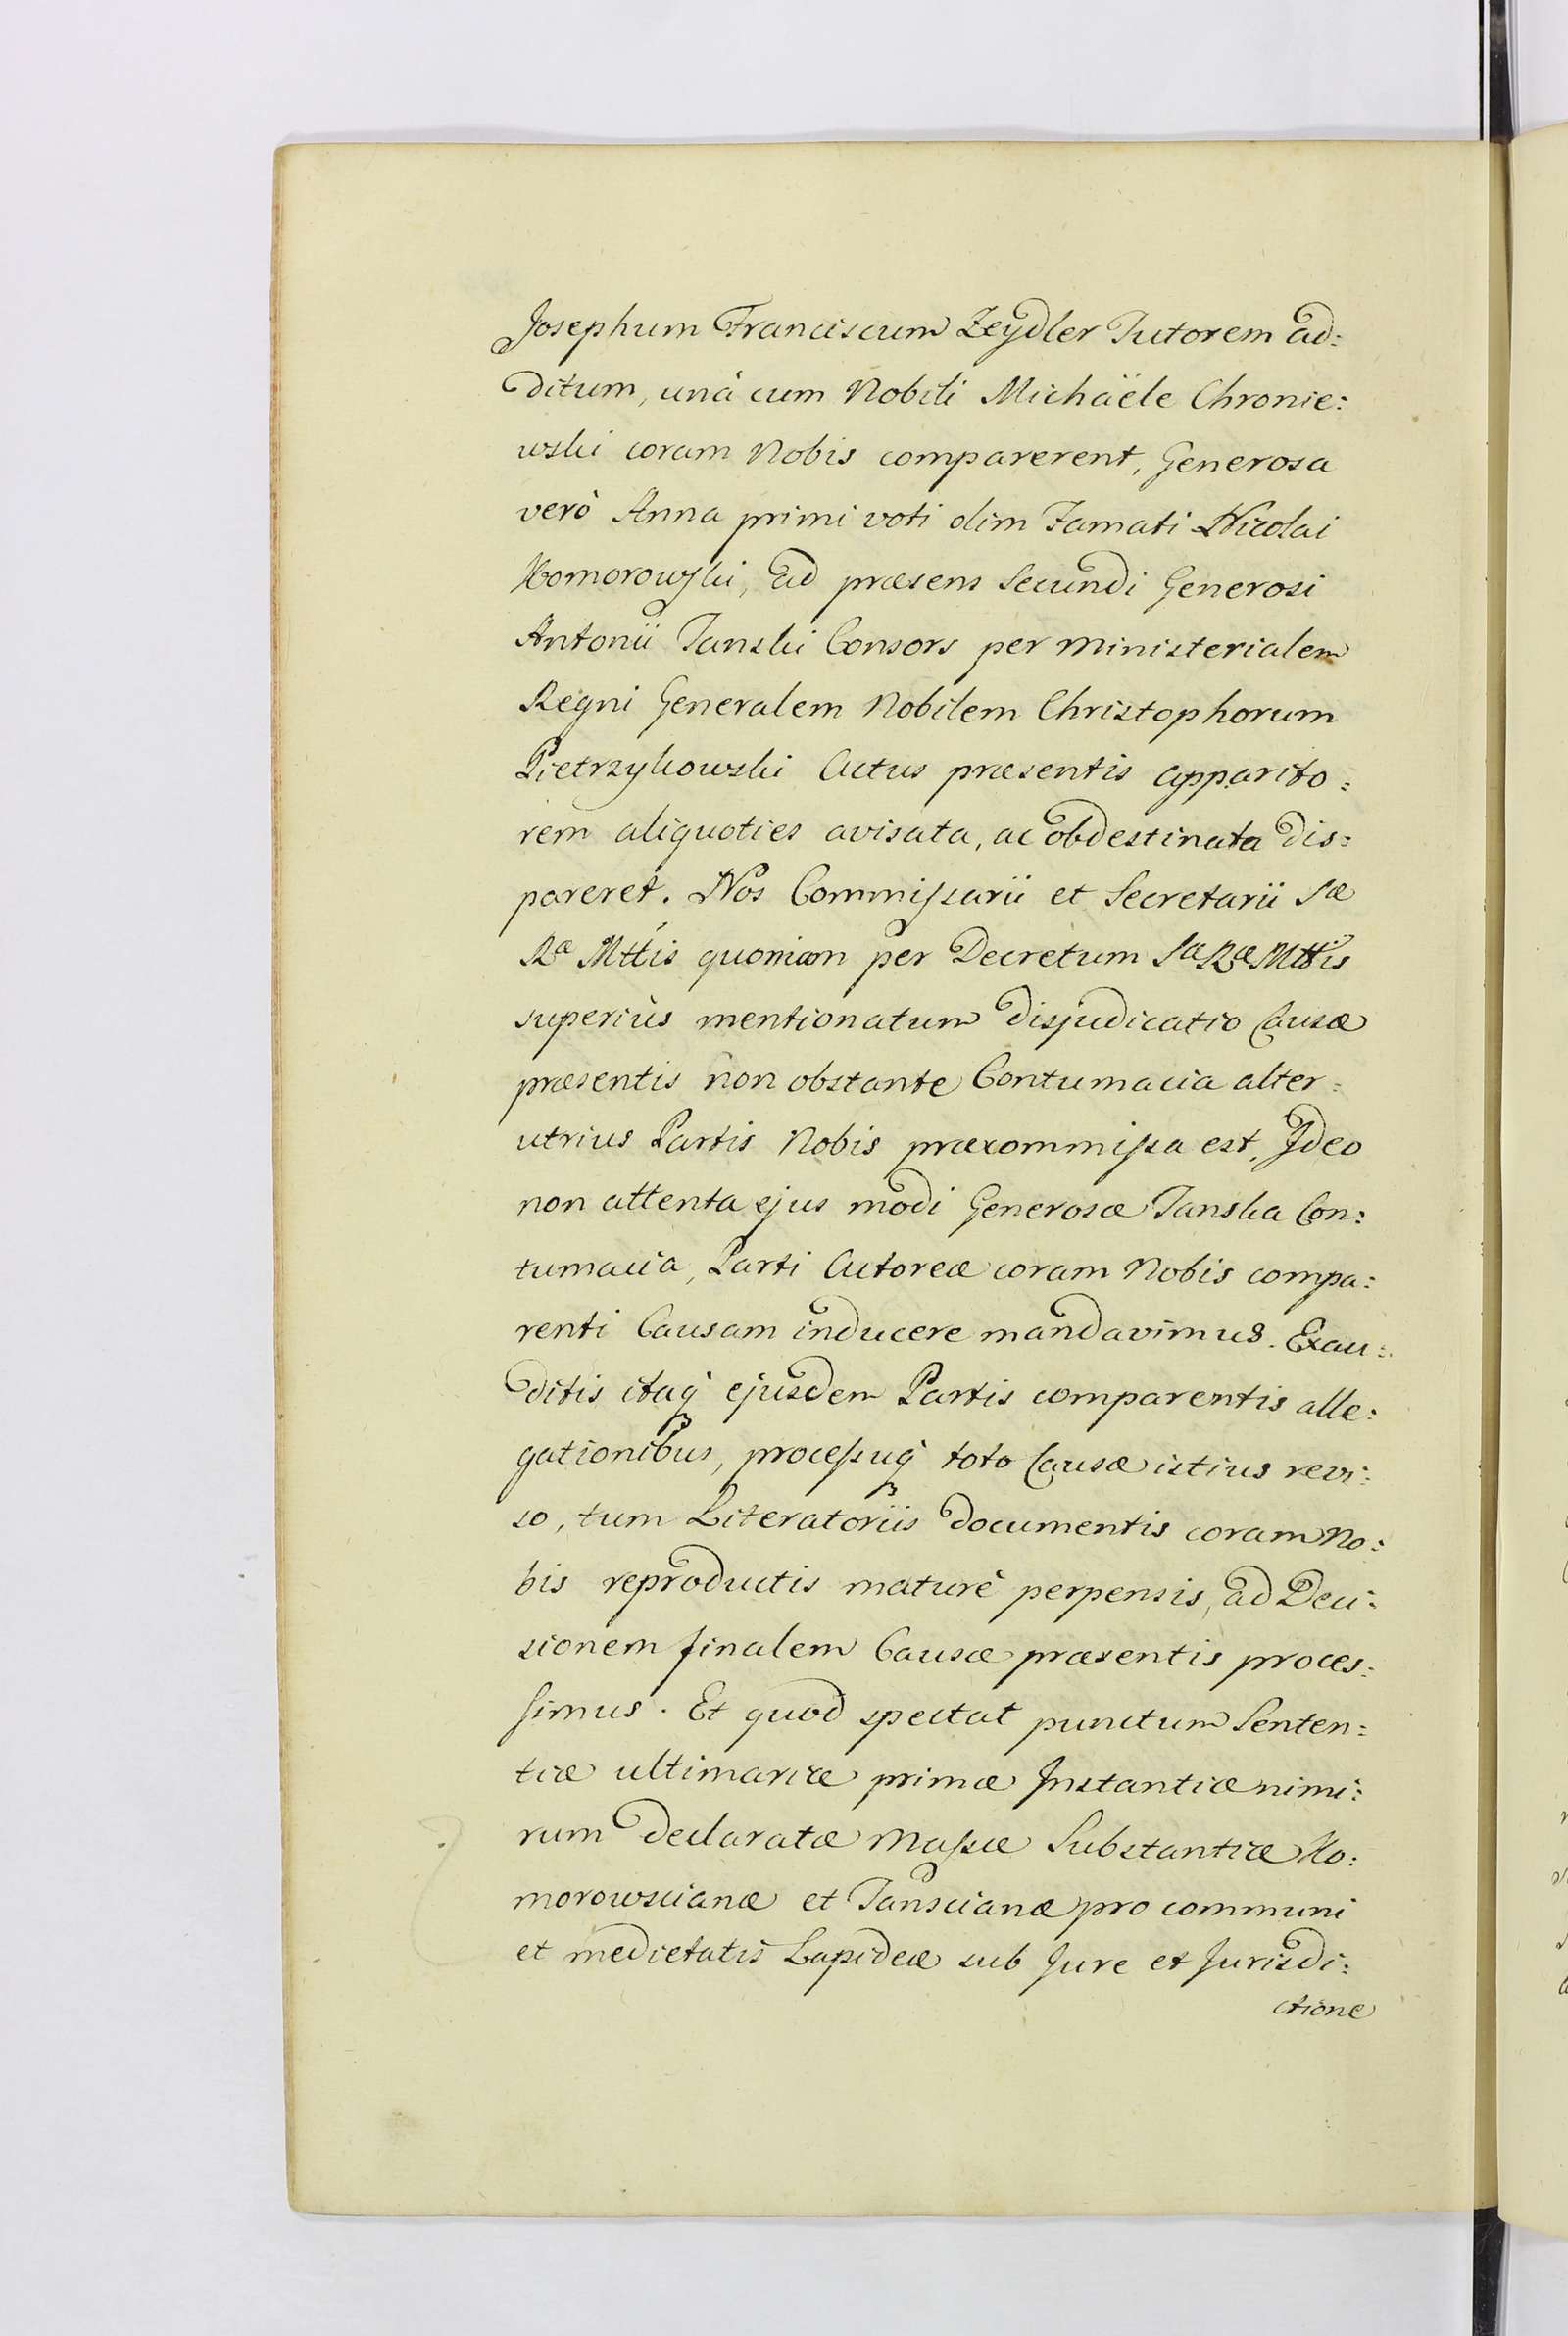 Josephum Franciscum Zeydler Tutorem ad:
ditum, unà cum Nobili Michaële Chronie:
wski coram Nobis comparerent, Generosa
verò Anna primi voti olim Famati Nicolai
Komorowski, ad præsens Secundi Generosi
Antonii Janski Consors per Ministerialem
Regni Generalem Nobilem Christophorum
Pietrzykowski Actus præsentis apparito:
rem aliquoties avisata, ac obdestinata dis:
pareret. Nos Commissarii et Secretarii Sæ
Ræ Mttis quoniam per Decretum Sæ Ræ Mttis
superiùs mentionatum disjudicatio Causæ
præsentis non obstante Contumacia alter:
utrius Partis Nobis præcommissa est, Ideo
non attenta ejus modi Generosæ Janska Con:
tumacia, Parti Actoreæ coram Nobis compa:
renti Causam inducere mandavimus. Exau:
ditis itaq́ ejusdem Partis comparentis alle:
gationibus, processuq́ toto Causæ istius revi:
so, tum Literatoriis documentis coram No:
bis reproductis maturè perpensis, ad Deci:
sionem finalem Causæ præsentis proces:
simus. Et quod spectat punctum Senten:
tiæ ultimariæ primæ Instantiæ nimi:
rum declaratæ Massæ Substantiæ Ko:
morowscianæ et Janscianæ pro communi
et medietatis Lapideæ sub Jure et Jurisdi:
ctione